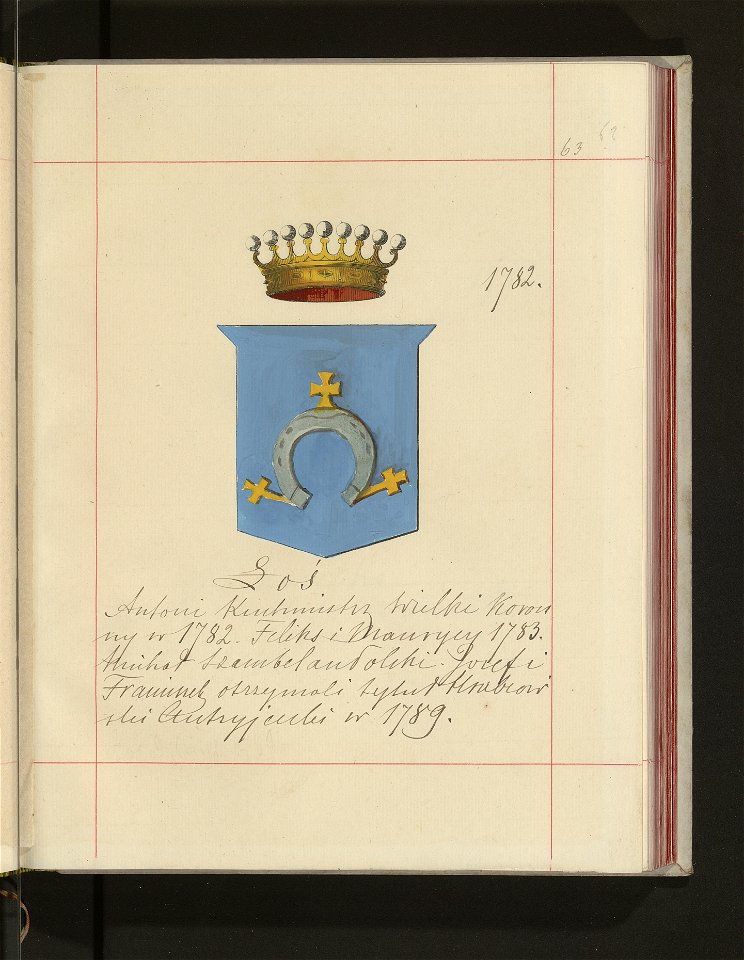 63 62
1782.
Łoś
Antoni Kuchmistrz Wielki Koron
ny w 1782. Feliks i Maurycy 1783.
Michał Szambelan Polski. Józef i
Franciszek otrzymali tytuł Hrabiow
ski Austryjacki w 1789.